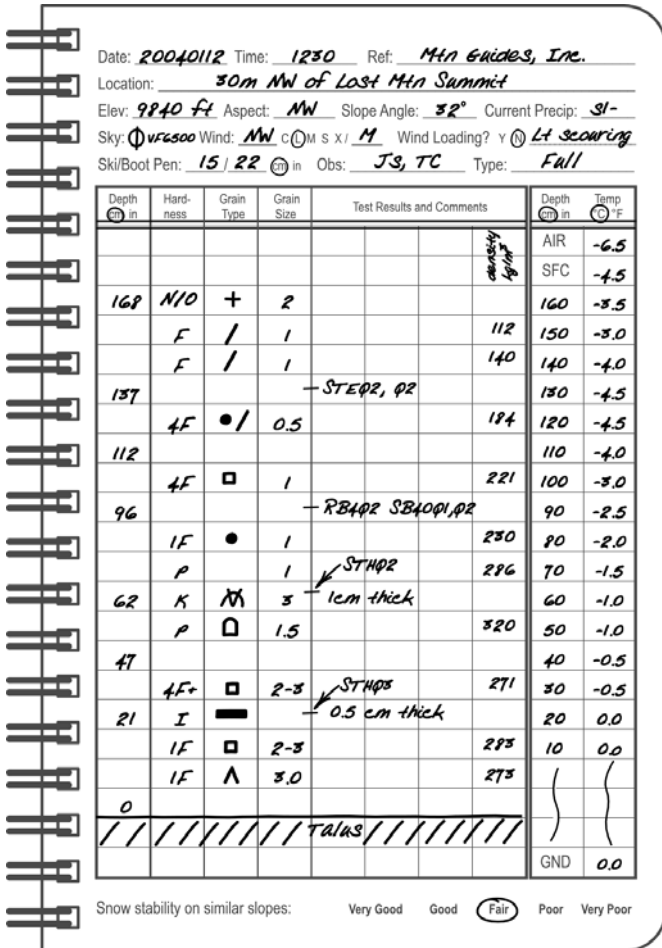 Date: 20040112 Time: 1230 Ref: Mtn Guides, Inc.
Location: 30m NW of Lost Mtn Summit
Elev: 9840 ft Aspect: NW Slope Angle: 32° Current Precip: S1-
Sky: Φ VF6500 Wind: NW C L M S X / M Wind Loading? Y N Lt scouring
Ski/Boot Pen: 15 / 22 cm in Obs: JS, TC Type: Full
Depth Hard- Grain Grain Test Results and Comments Depth Temp
cm in ness Type Size cm in °C °F
density kg/m³
AIR -6.5
SFC -4.5
168 N/O + 2 160 -3.5
F / 1 112 150 -3.0
F / 1 140 140 -4.0
137 STEQ2, Q2 130 -4.5
4F ●/ 0.5 184 120 -4.5
112 110 -4.0
4F □ 1 221 100 -3.0
96 RB4Q2 SB40Q1,Q2 90 -2.5
1F ● 1 230 80 -2.0
P 1 STHQ2 286 70 -1.5
62 K 3 1cm thick 60 -1.0
P 1.5 320 50 -1.0
47 40 -0.5
4F+ □ 2-3 STHQ3 271 30 -0.5
21 I ▬ 0.5 cm thick 20 0.0
1F □ 2-3 283 10 0.0
1F Λ 3.0 273
0
Talus
GND 0.0
Snow stability on similar slopes: Very Good Good Fair Poor Very Poor